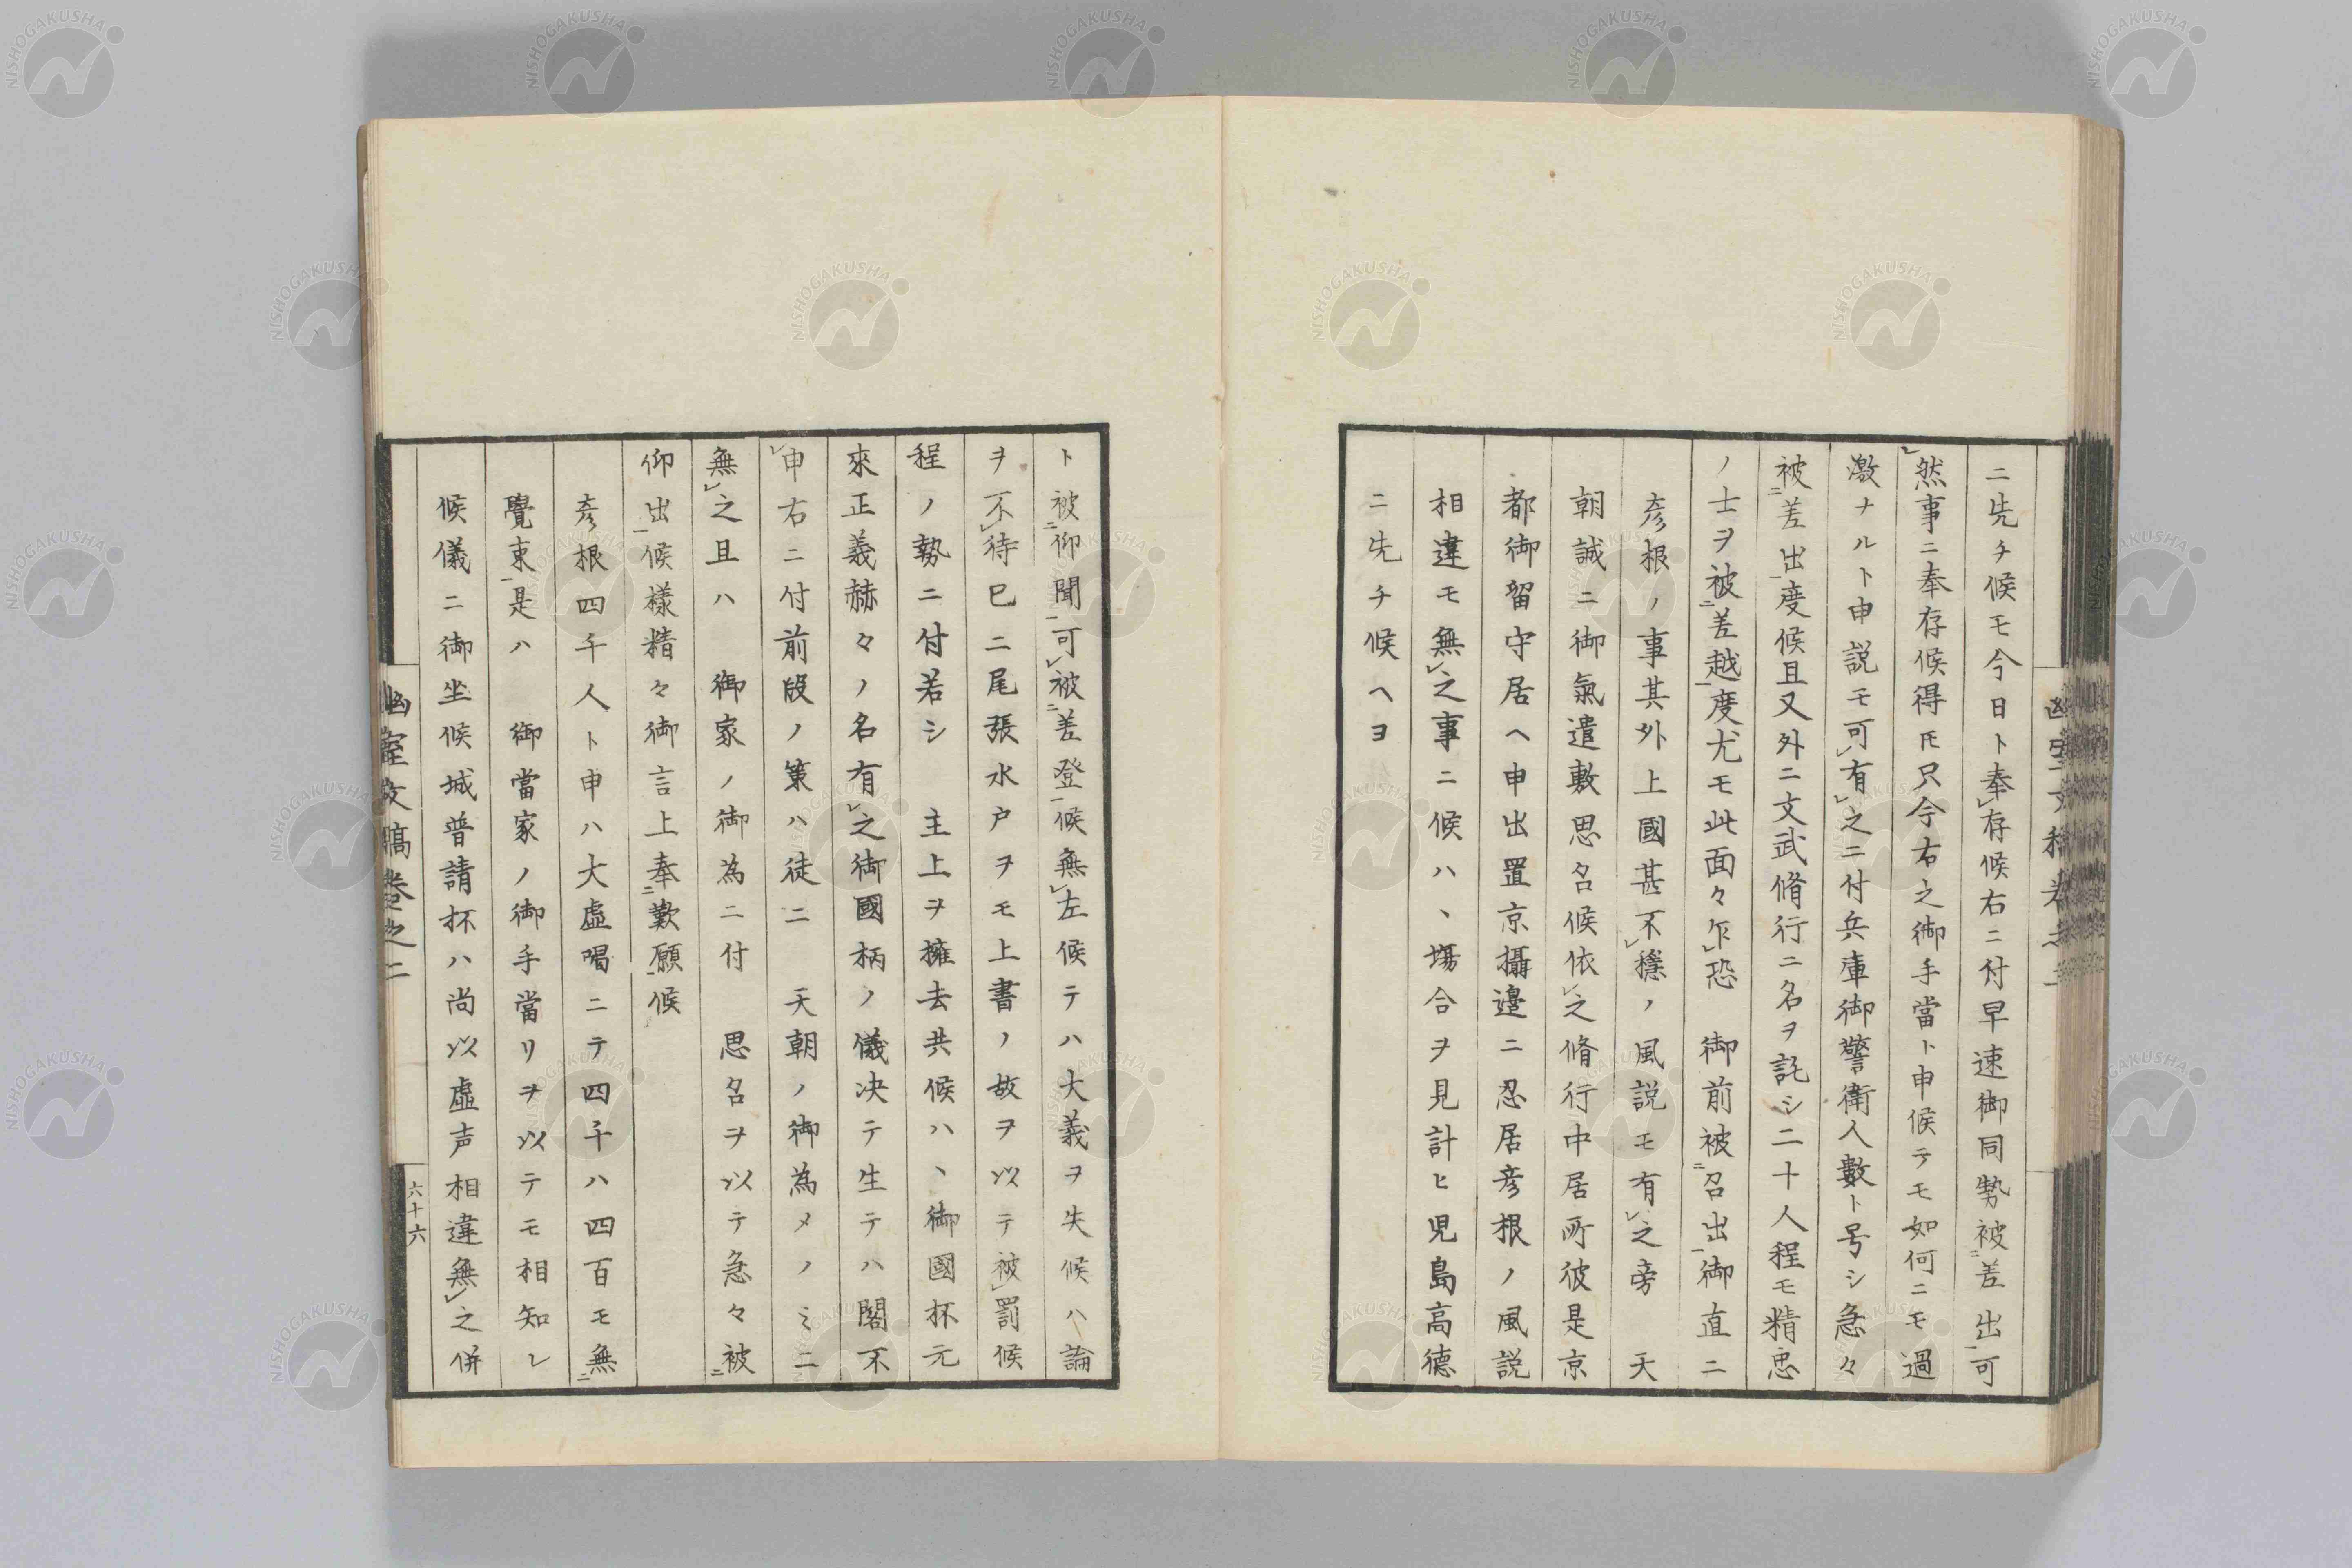 ニ先チ候モ今日ト奉レ存候右ニ付早速御同勢被二差出一可
レ然事ニ奉存候得𪜈只今右之御手當ト申候テモ如何ニモ過
激ナルト申説モ可レ有レ之ニ付兵庫御警衛人數ト号シ急々
被二差出一度候且又外ニ文武脩行ニ名ヲ託シ二十人程モ精忠
ノ士ヲ被二差越一度尤モ此面々乍レ恐　御前被二召出一御直ニ
彦根ノ事其外上國甚不レ穩ノ風説モ有レ之旁　天
朝誠ニ御氣遣敷思召候依レ之脩行中居所彼是京
都御留守居ヘ申出置京攝邉ニ忍居彦根ノ風説
相違モ無レ之事ニ候ハヽ塲合ヲ見計ヒ児島高德
ニ先チ候ヘヨ
ト被二仰聞一可レ被二差登一候無レ左候テハ大義ヲ失候ハ論
ヲ不レ待已ニ尾張水戸ヲモ上書ノ故ヲ以テ被レ罰候
程ノ勢ニ付若シ　主上ヲ擁去共候ハヽ御國抔元
來正義赫々ノ名有レ之御國柄ノ儀决テ生テハ閣不
レ申右ニ付前段ノ策ハ徒ニ　天朝ノ御為メノミニ
無レ之且ハ　御家ノ御為ニ付　思召ヲ以テ急々被二
仰出一候樣精々御言上奉二歎願一候
彦根四千人ト申ハ大虚喝ニテ四千ハ四百モ無二
覺束一是ハ　御當家ノ御手當リヲ以テモ相知レ
候儀ニ御坐候城普請抔ハ尚以虚声相違無レ之併
幽室文稿卷之二
六十六